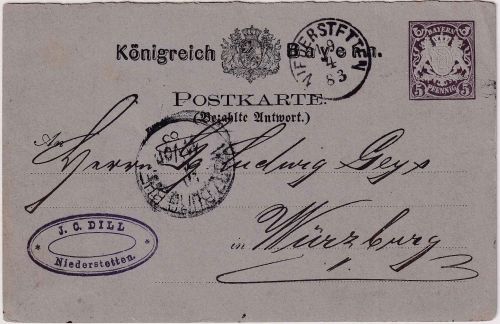 Königreich Bayern.
BAYERN
5 PFENNIG 5
NIEDERSTETTEN
9
4
83
POSTKARTE.
(Bezahlte Antwort.)
An
Herrn Ludwig Geys
in Würzburg
WÜRZBURG
J. C. DILL
Niederstetten.